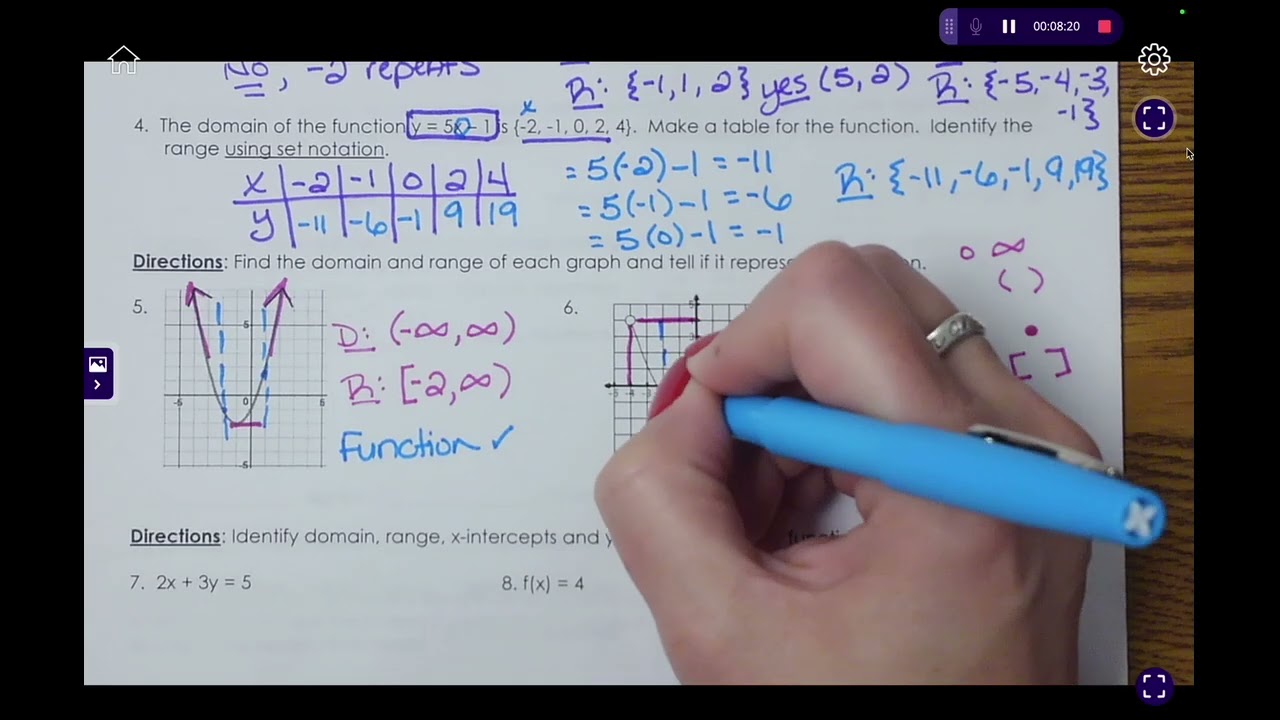 00:08:20
No, -2 repeats
R: {-1, 1, 2} yes (5, 2) R: {-5, -4, -3,
-1}
x
4. The domain of the function y = 5x - 1 is {-2, -1, 0, 2, 4}. Make a table for the function. Identify the
range using set notation.
x | -2 | -1 | 0 | 2 | 4
y | -11 | -6 | -1 | 9 | 19
= 5(-2) - 1 = -11
= 5(-1) - 1 = -6
= 5(0) - 1 = -1
R: {-11, -6, -1, 9, 19}
Directions: Find the domain and range of each graph and tell if it
∞
( )
[ ]
5.
5
-5
0
5
-5
D: (-∞, ∞)
R: [-2, ∞)
Function ✓
6.
Directions: Identify domain, range, x-intercepts and
7. 2x + 3y = 5
8. f(x) = 4